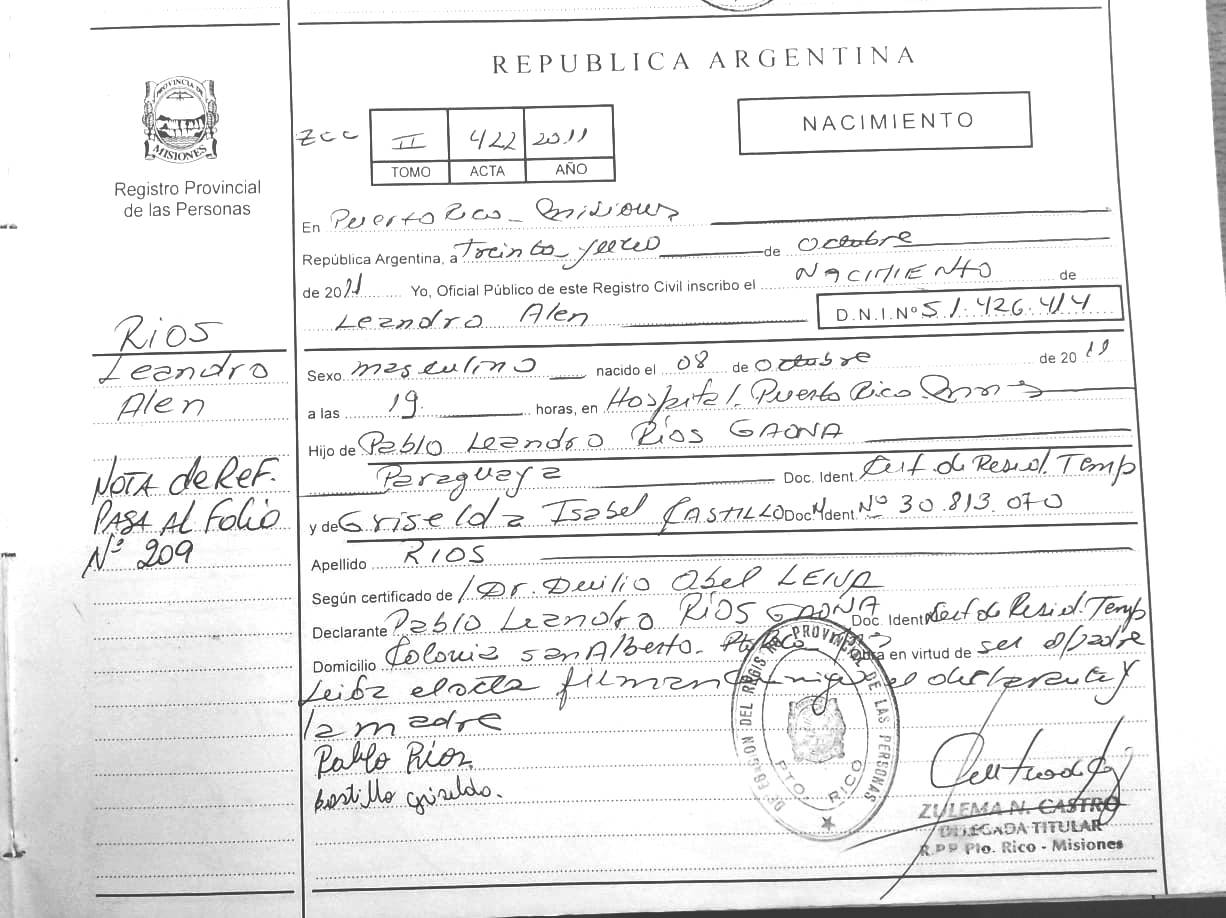 REPUBLICA ARGENTINA
PROVINCIA DE
MISIONES
Registro Provincial
de las Personas
ZCC II 422 2011
TOMO ACTA AÑO
NACIMIENTO
En Puerto Rico - Misiones
República Argentina, a Treinta y uno de Octubre
de 2011 Yo, Oficial Público de este Registro Civil inscribo el NACIMIENTO de
Leandro Alen D.N.I.Nº 51.426.414
Sexo masculino nacido el 08 de Octubre de 20
a las 19 horas, en Hospital Puerto Rico
Hijo de Pablo Leandro Ríos GAONA
Paraguaya Doc. Ident. Cert. de Resid. Temp
y de Griselda Isabel CASTILLO Doc. Ident. Nº 30.813.070
Apellido RIOS
Según certificado de Dr. Duilio Abel LEIVA
Declarante Pablo Leandro RÍOS GAONA Doc. Ident. Cert de Resid. Temp
Domicilio Colonia San Alberto - Pto Rico Obra en virtud de ser el padre
Leída el acta firman conmigo el declarante y
la madre
Pablo Ríos
Castillo Griselda.
RIOS
Leandro
Alen
NOTA de REF.
PASA AL FOLIO
Nº 209
DELEGACION DEL REGISTRO PROVINCIAL DE LAS PERSONAS
PTO. RICO
ZULEMA N. CASTRO
DELEGADA TITULAR
R.P.P Pto. Rico - Misiones